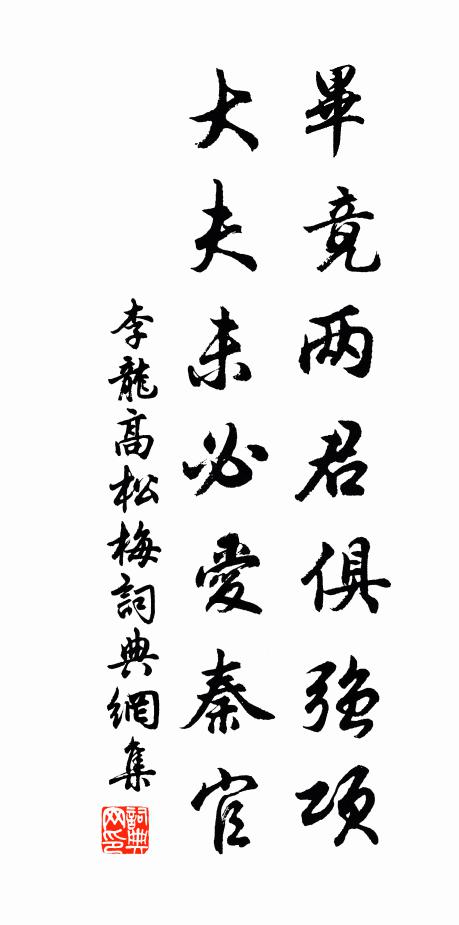 畢竟两君俱強項
大夫未必愛秦官
李龍高松梅詞典網集
詞典网印